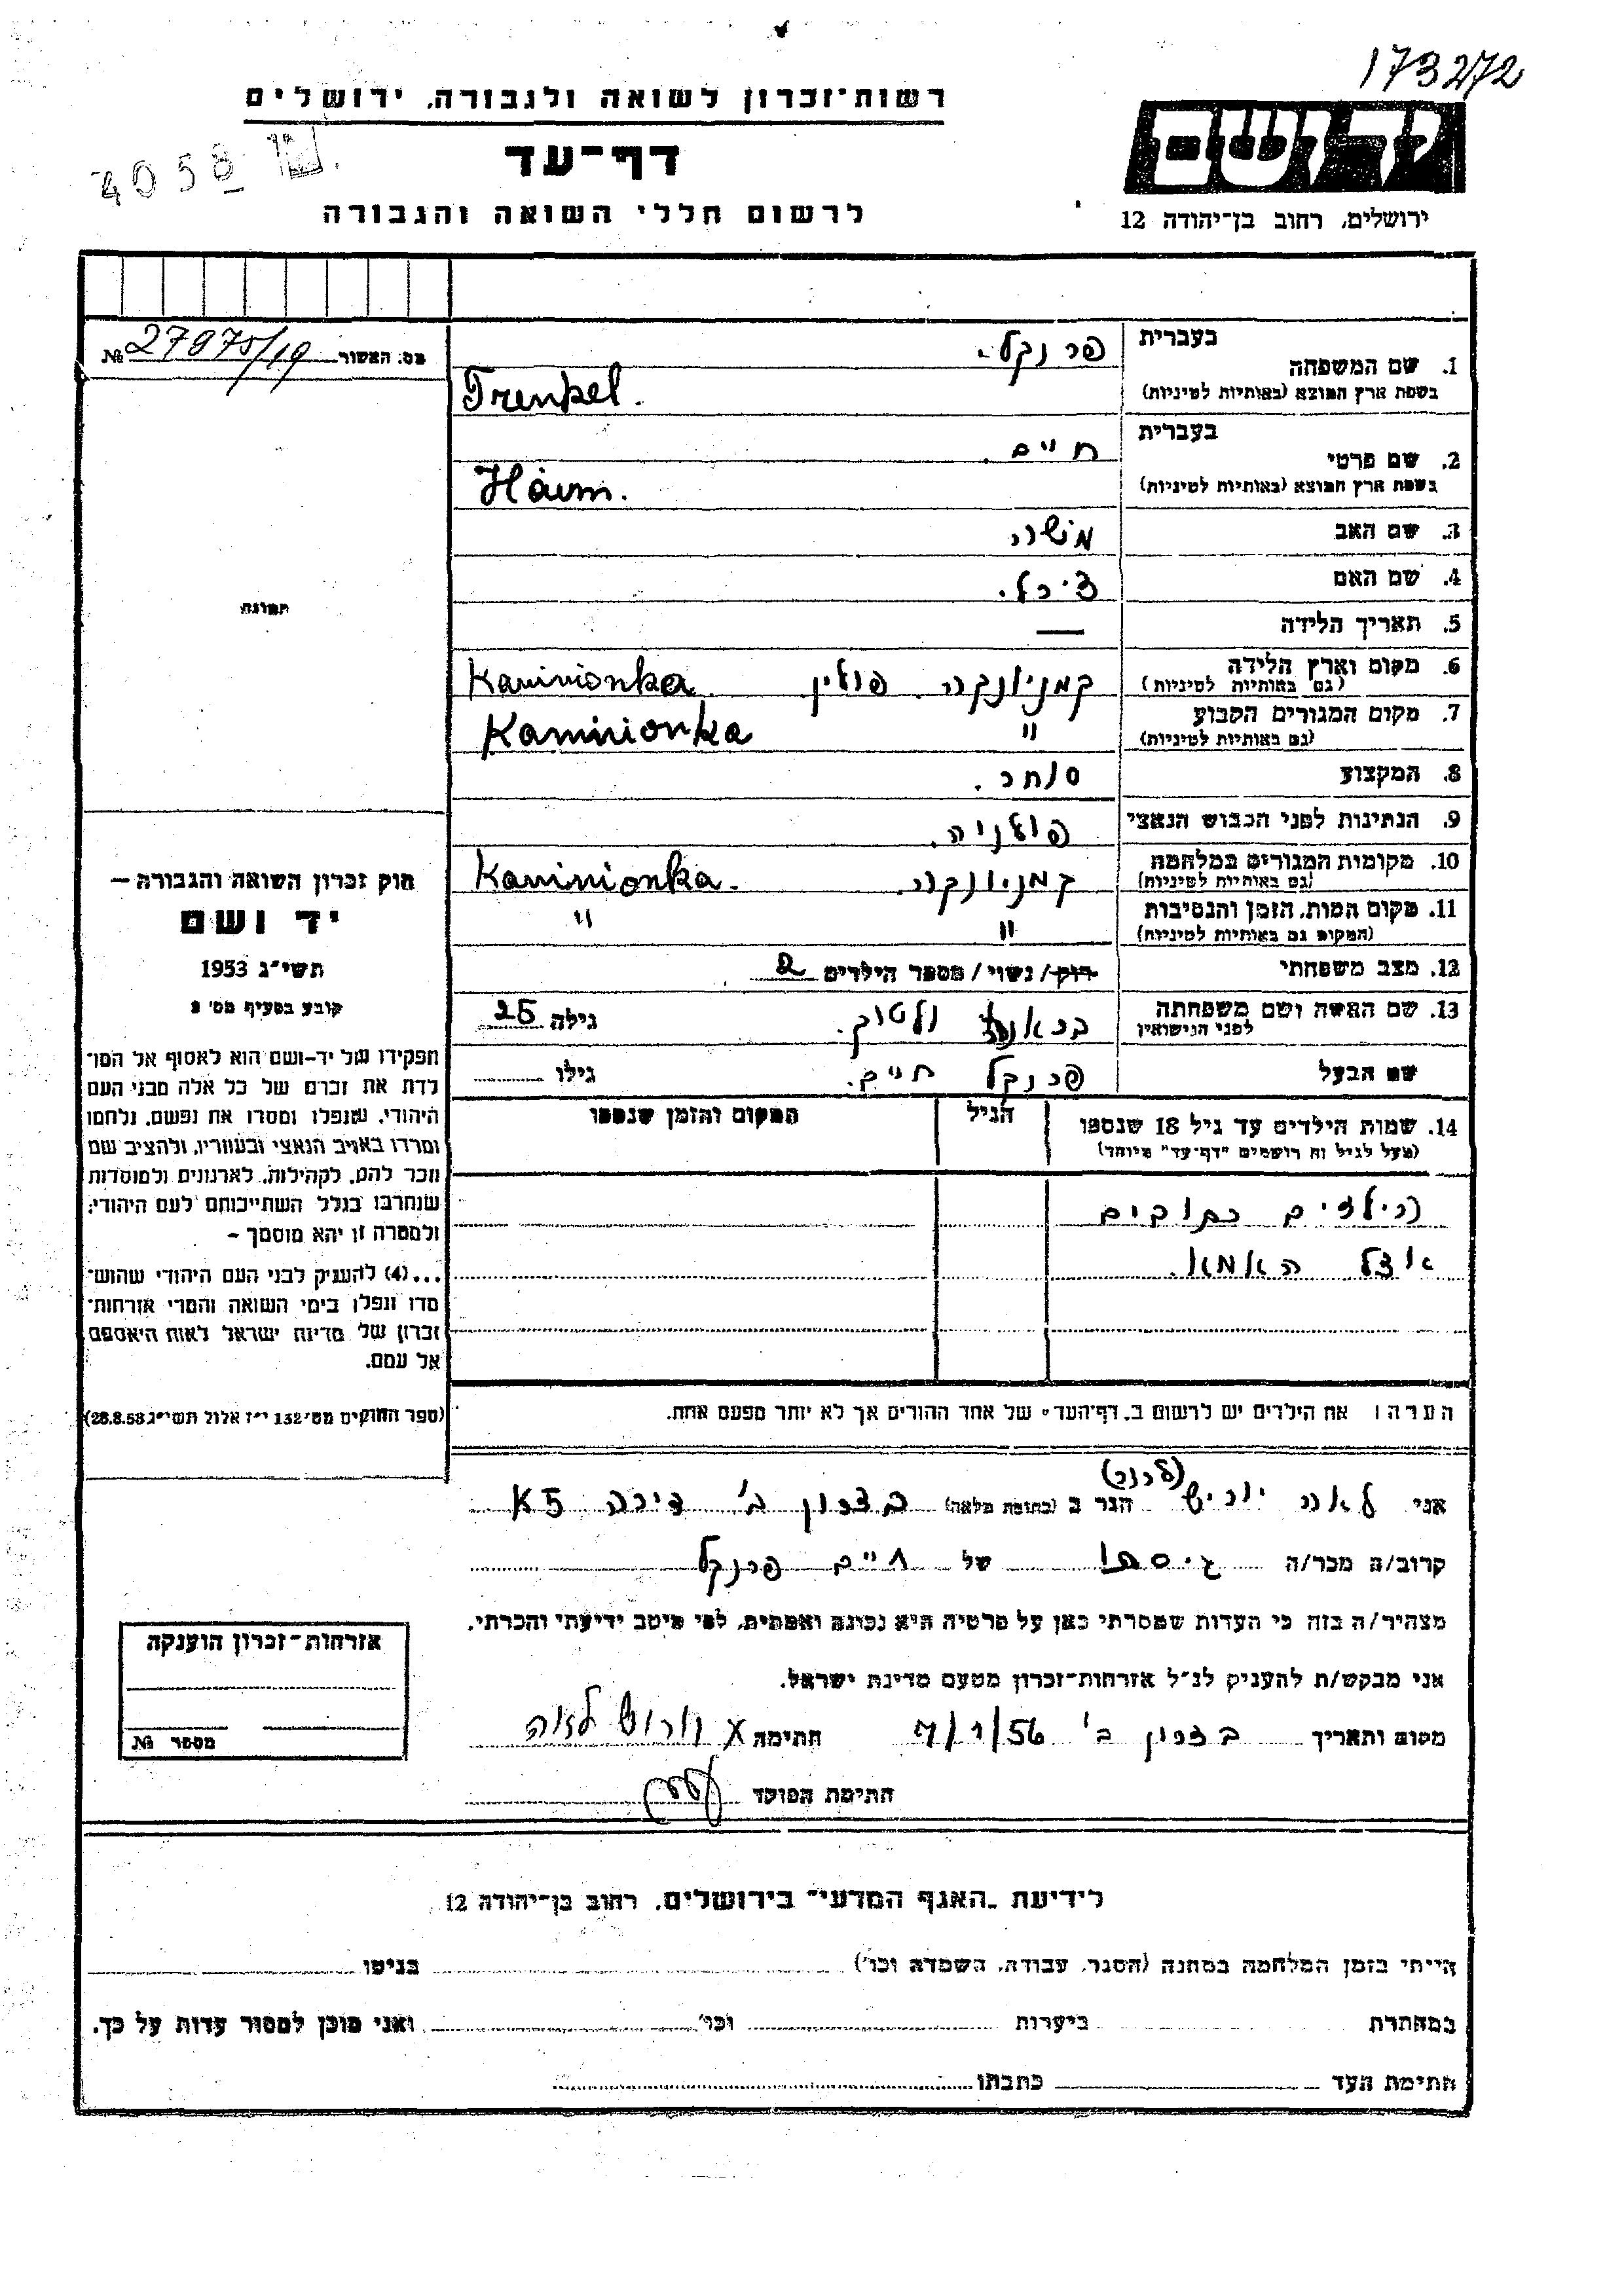 173272
רשות־זכרון לשואה ולגבורה, ירושלים
דף־עד
4058
לרשום חללי השואה והגבורה
ירושלים, רחוב בן־יהודה 12
מס. האשור № 27975/19
בעברית
פרנקל.
1. שם המשפחה
בשפת ארץ המוצא (באותיות לטיניות)
Frenkel.
בעברית
חיים.
2. שם פרטי
בשפת ארץ המוצא (באותיות לטיניות)
Haim.
3. שם האב משה
4. שם האם
תמונה
5. תאריך הלידה —
6. מקום וארץ הלידה קמניונקה פולין Kaminionka
(גם באותיות לטיניות)
7. מקום המגורים הקבוע " Kaminionka
(גם באותיות לטיניות)
8. המקצוע סוחר.
9. הנתינות לפני הכבוש הנאצי פולניה.
10. מקומות המגורים במלחמה קמניונקה. Kaminionka.
(גם באותיות לטיניות)
11. מקום המות, הזמן והנסיבות " "
(המקום גם באותיות לטיניות)
12. מצב משפחתי רוק/ נשוי/ מספר הילדים 2
13. שם האשה ושם משפחתה
לפני הנישואין
גילה 25
שם הבעל פרנקל חיים. גילו
14. שמות הילדים עד גיל 18 שנספו
(מעל לגיל זה רושמים "דף־עד" מיוחד)
הגיל
המקום והזמן שנספו
הילדים כתובים
אצל האמא.
חוק זכרון השואה והגבורה —
יד ושם
תשי"ג 1953
קובע בסעיף מס' 2
תפקידו של יד-ושם הוא לאסוף אל המו־
לדת את זכרם של כל אלה מבני העם
היהודי, שנפלו ומסרו את נפשם, נלחמו
ומרדו באויב הנאצי ובעוזריו, ולהציב שם
וזכר להם, לקהילות, לארגונים ולמוסדות
שנחרבו בגלל השתייכותם לעם היהודי;
ולמטרה זו יהא מוסמך —
...(4) להעניק לבני העם היהודי שהוש־
מדו ונפלו בימי השואה והמרי אזרחות־
זכרון של מדינת ישראל לאות היאספם
אל עמם.
(ספר החוקים מס' 132 י"ז אלול תשי"ג 28.8.53)
הערה: את הילדים יש לרשום ב„דף־העד" של אחד ההורים אך לא יותר מפעם אחת.
אני לאה הגר ב (כתובת מלאה) בצרון ב' דירה K5
קרוב/ה מכר/ה גיסתו של חיים פרנקל
מצהיר/ה בזה כי העדות שמסרתי כאן על פרטיה היא נכונה ואמתית, לפי מיטב ידיעתי והכרתי.
אני מבקש/ת להעניק לנ"ל אזרחות־זכרון מטעם מדינת ישראל.
מקום ותאריך בצרון ב' 9/1/56 חתימה X לאה
חתימת הפוקד
אזרחות־זכרון הוענקה
מספר №
לידיעת „האגף המדעי" בירושלים, רחוב בן־יהודה 12
הייתי בזמן המלחמה במחנה (הסגר, עבודה, השמדה וכו') בגיטו
במחתרת ביערות וכו' ואני מוכן למסור עדות על כך.
חתימת העד כתבתו